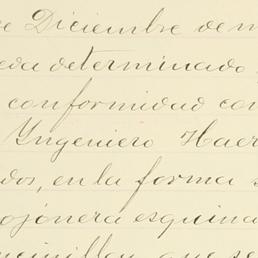 de Diciembre de m
eda determinado
conformidad con
Yngeniero Haer
dos, en la forma s
ojonera esquina
que se